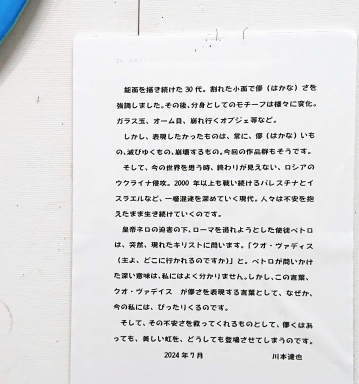 能面を描き続けた 30 代。割れた小面で儚（はかな）さを
強調しました。その後、分身としてのモチーフは様々に変化。
ガラス玉、オーム貝、崩れ行くオブジェ等など。
しかし、表現したかったものは、常に、儚（はかな）いも
の、滅びゆくもの、崩壊するもの。今回の作品群もそうです。
そして、今の世界を思う時、終わりが見えない、ロシアの
ウクライナ侵攻。2000 年以上も戦い続けるパレスチナとイ
スラエルなど、一層混迷を深めていく現代。人々は不安を抱
えたまま生き続けていくのです。
皇帝ネロの迫害の下、ローマを逃れようとした使徒ペトロ
は、突然、現れたキリストに問います。「クオ・ヴァディス
（主よ、どこに行かれるのですか）」と。ペトロが問いかけ
た深い意味は、私にはよく分かりません。しかし、この言葉、
クオ・ヴァデイス が儚さを表現する言葉として、なぜか、
今の私には、ぴったりくるのです。
そして、その不安さを救ってくれるものとして、儚くはあ
っても、美しい虹を、どうしても登場させてしまうのです。
2024 年 7 月 川本達也